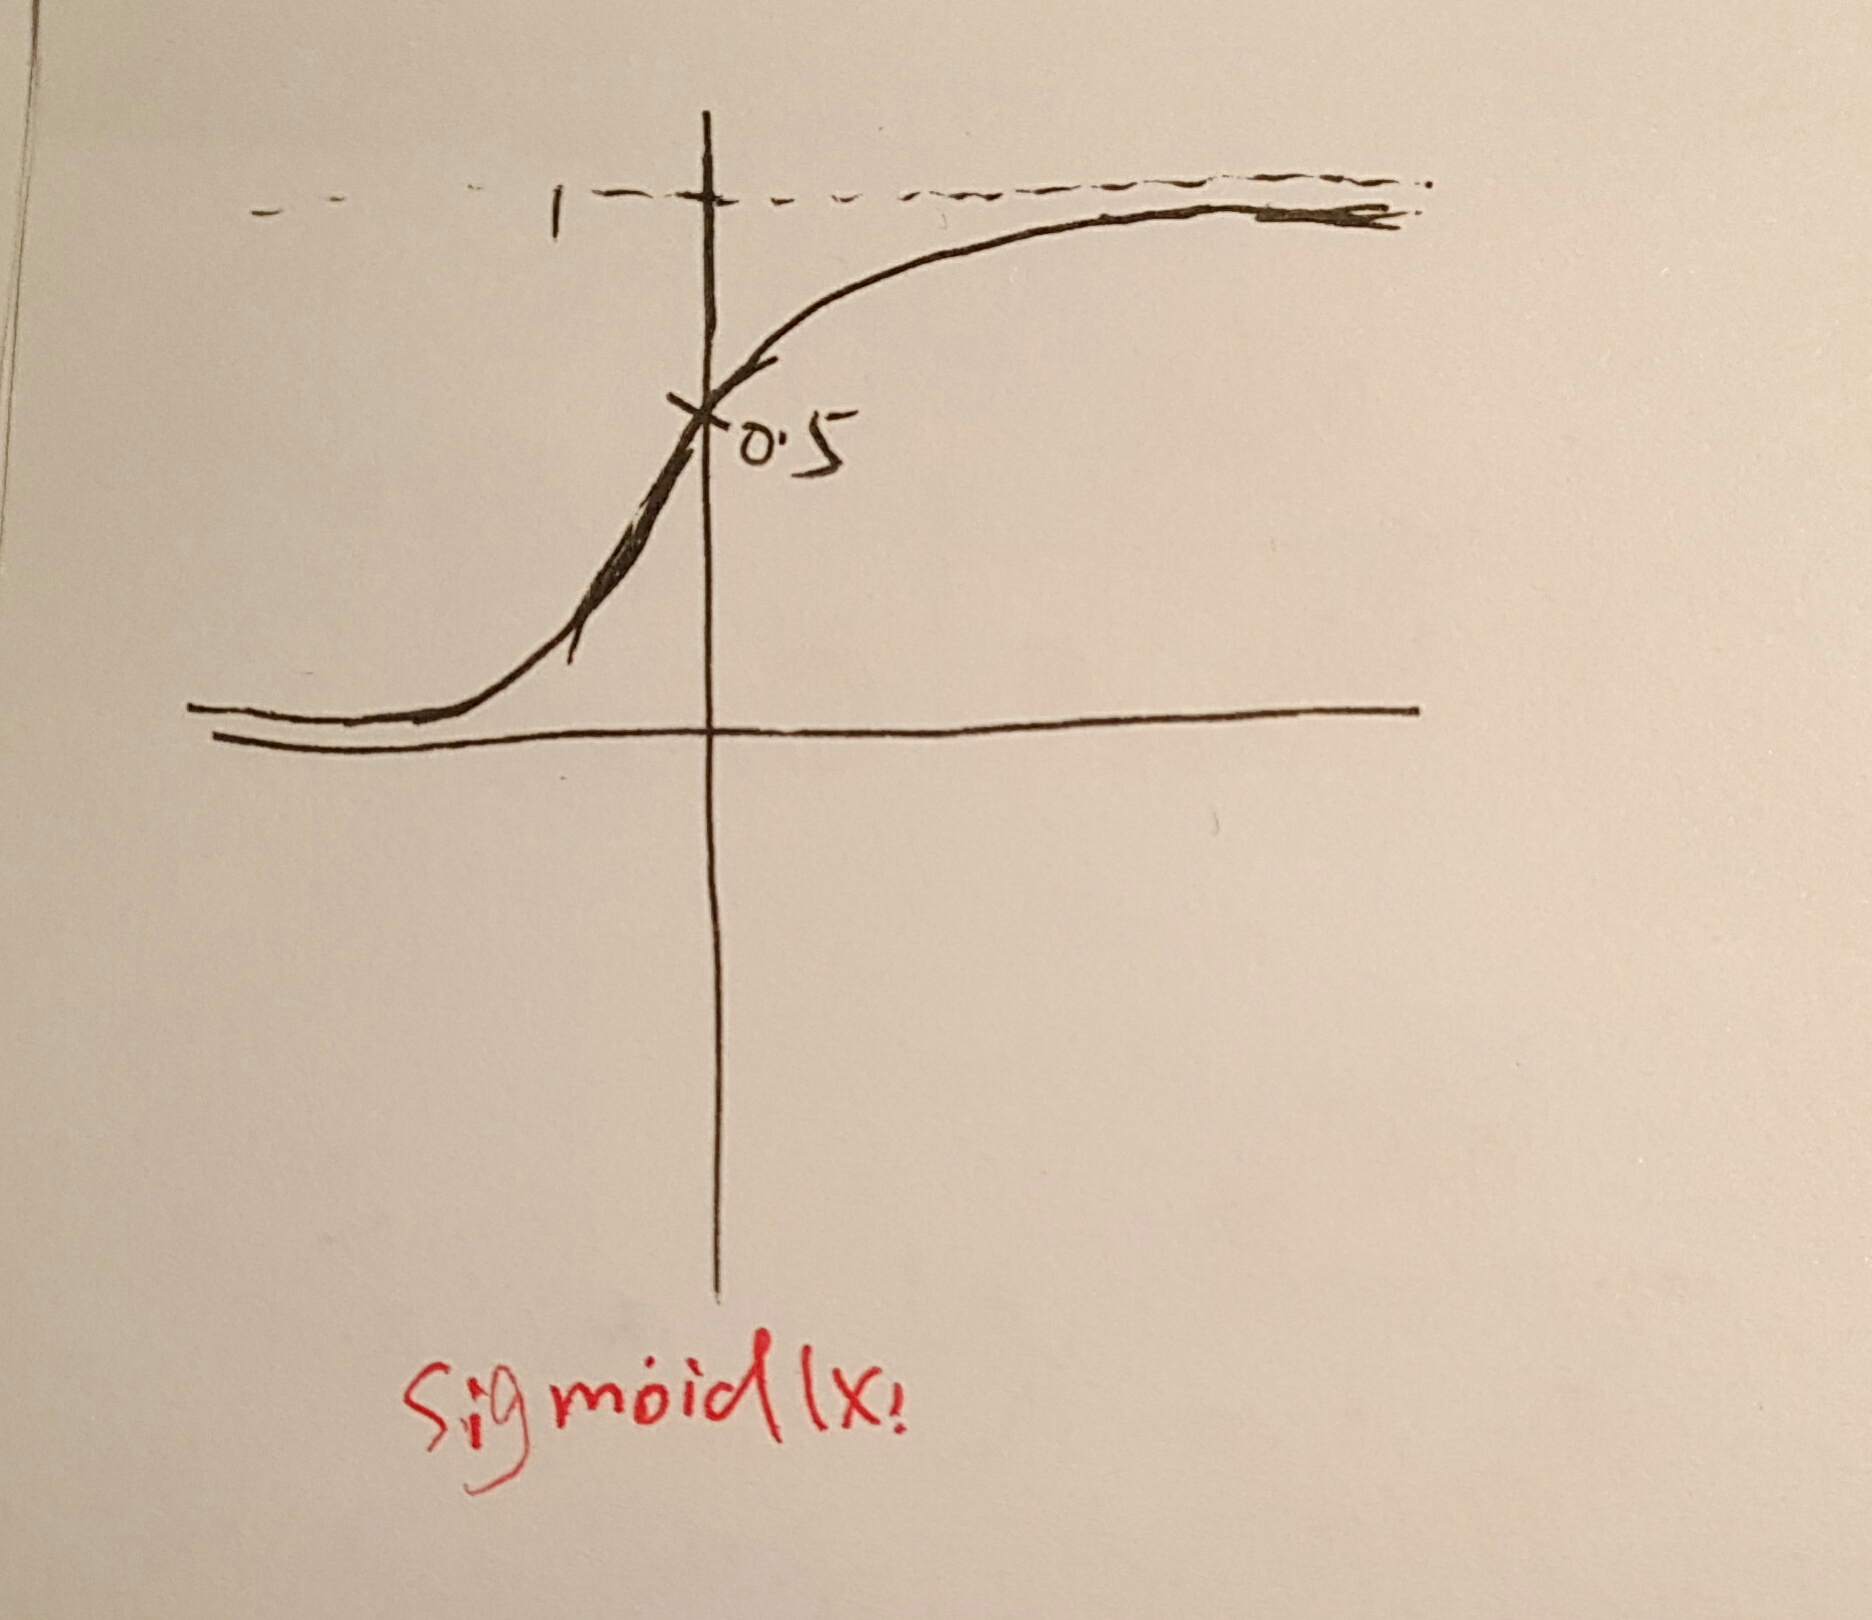 1
0.5
Sigmoid (x)